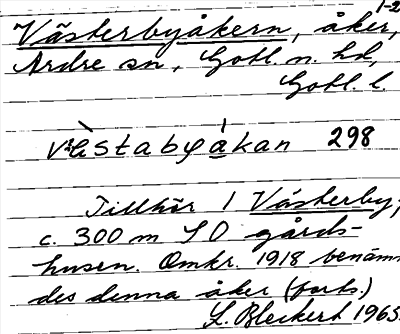 1-2
Västerbyåkern, åker,
Ardre sn, Gotl. n. hd,
Gotl. l.
västabyakan 298
Tillhör 1 Västerby,
c. 300 m SO gårds-
husen. Omkr. 1918 benäm-
des denna åker (forts.)
L. Bleckert 1965